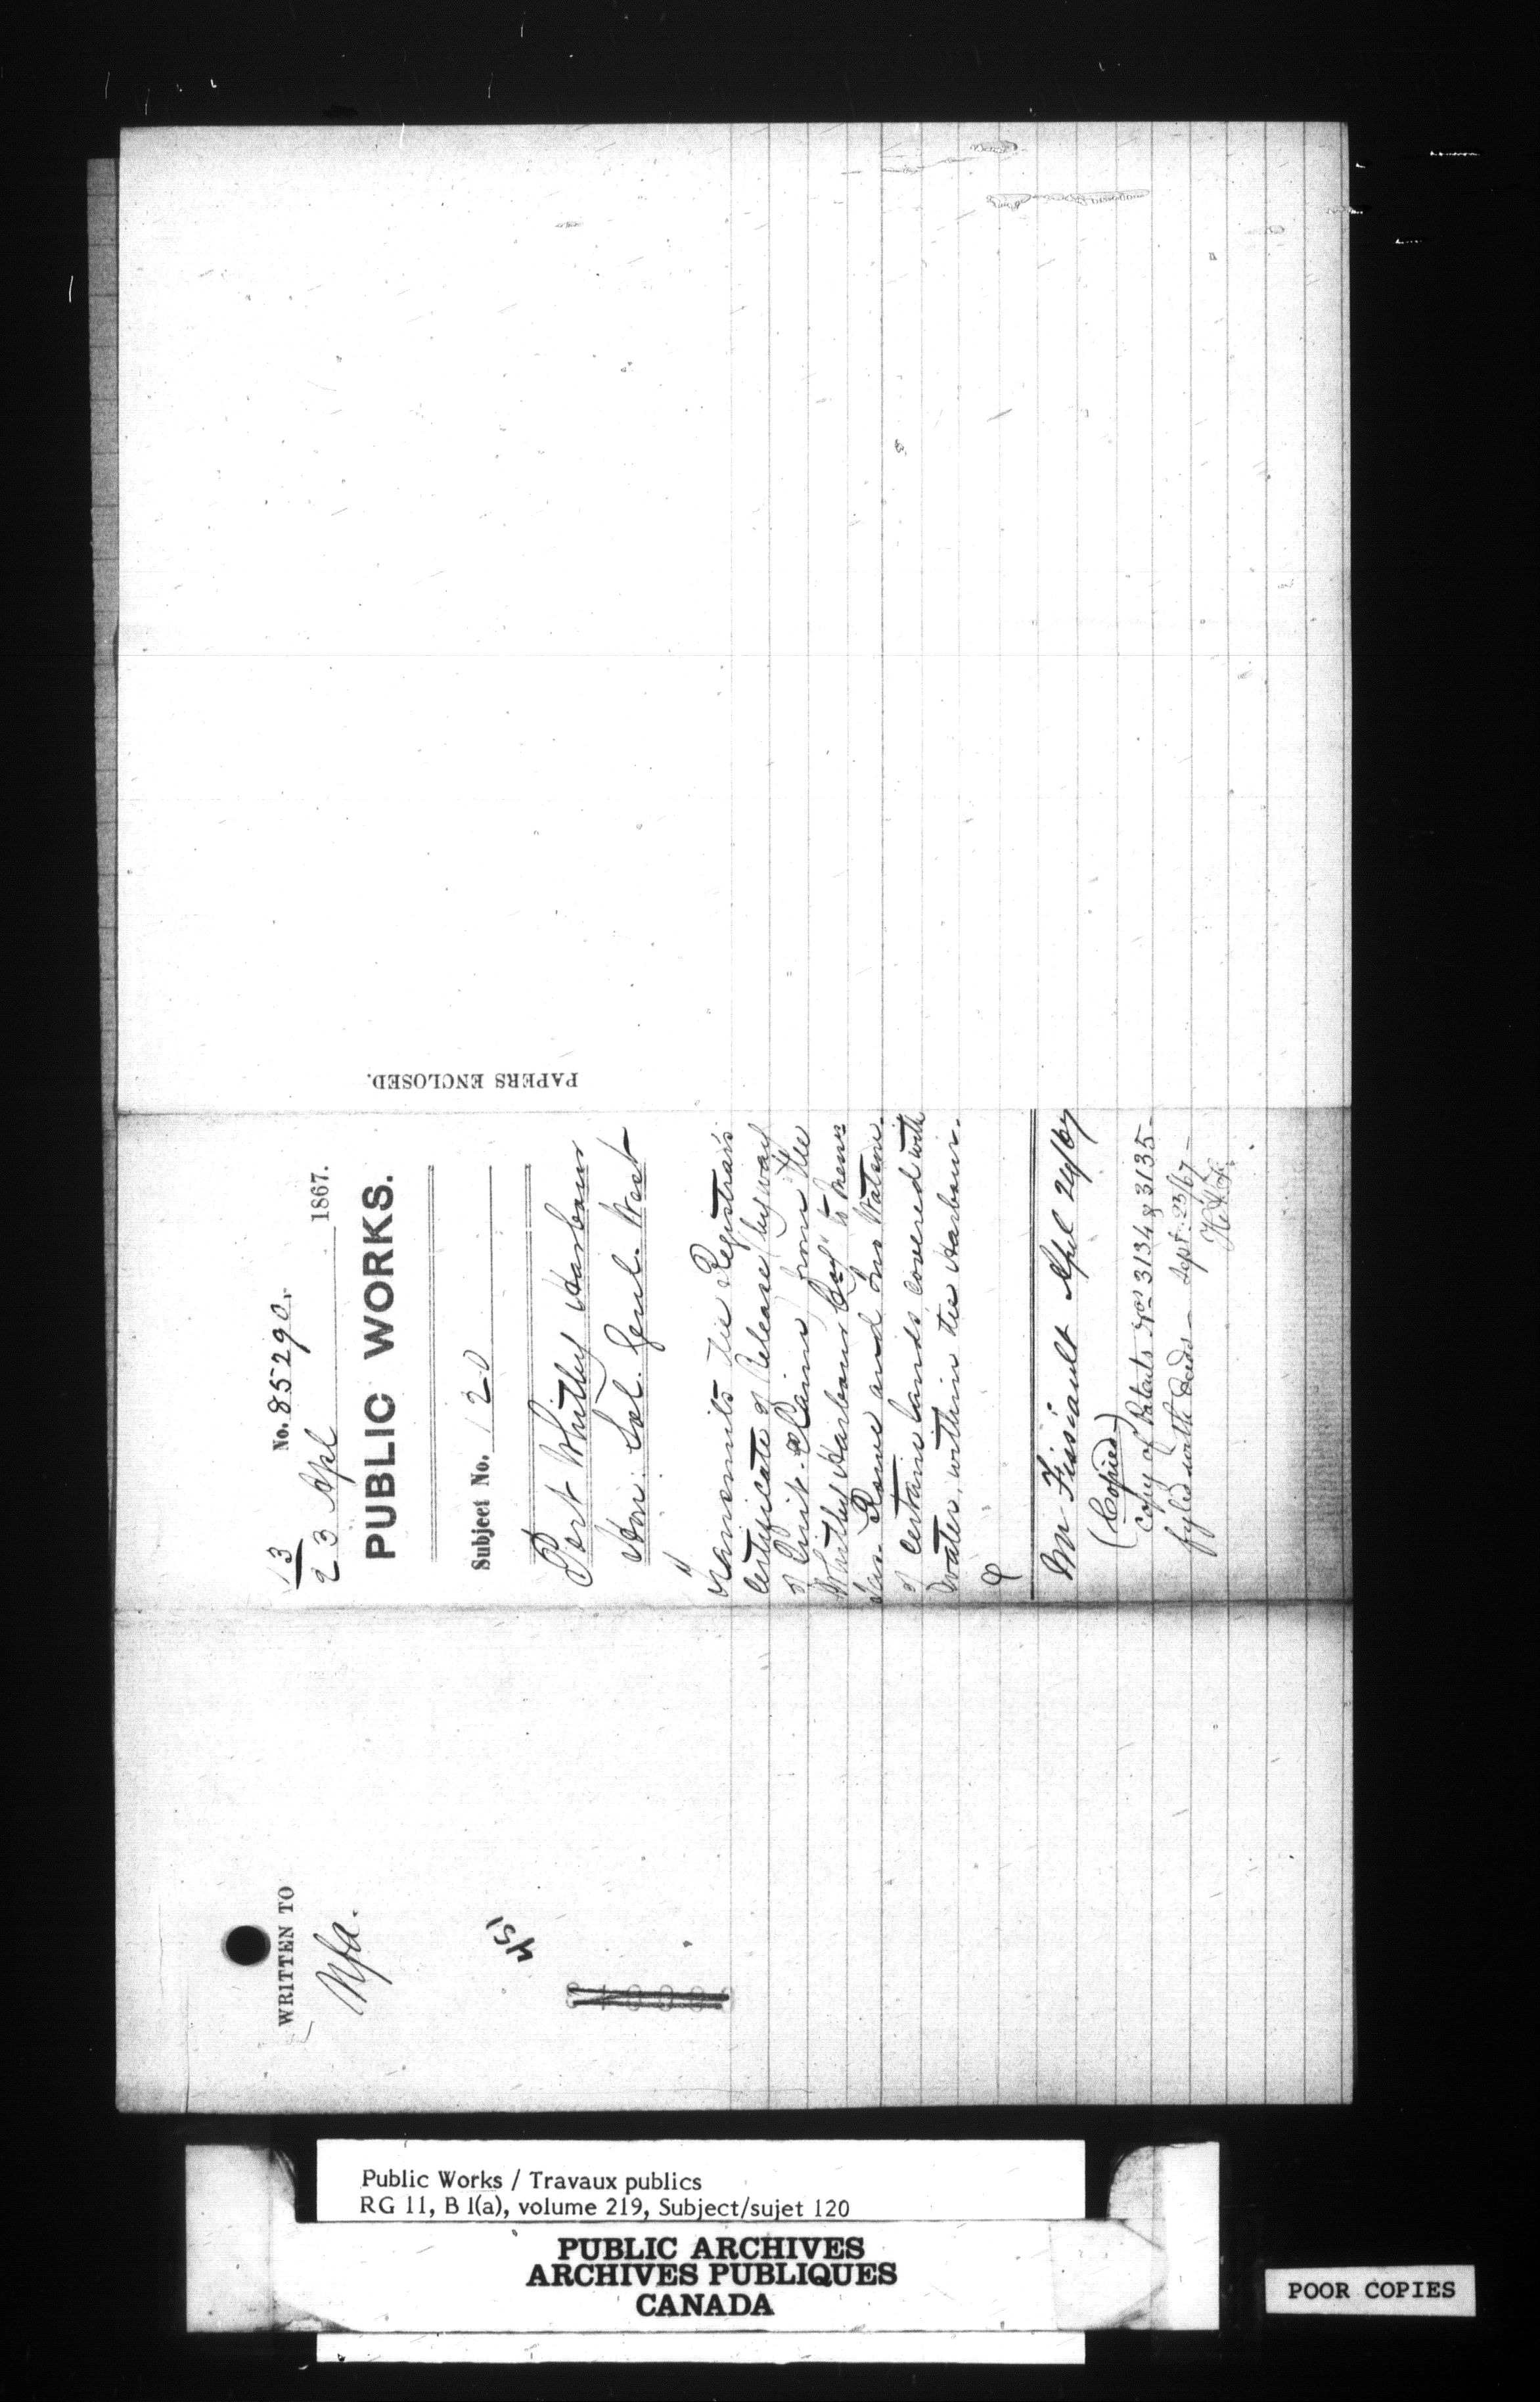 No. 85290.
13
23 Apl 1867.
PUBLIC WORKS.
Subject No. 120
Port Whitby Harbour
Hon. Sol. Genl. West
Transmits the Registrar's
Certificate of Release (by way
of Quit-Claim) from the
Whitby Harbour Coy to
and
of certain lands covered with
water, within the Harbour.
Mr Fissiault Apl 24/67
(Copied)
Copy of Patents Nos 3134 & 3135
fyled with Deeds — Sept. 23/67 —
PAPERS ENCLOSED.
WRITTEN TO
Nfa.
451
Public Works / Travaux publics
RG 11, B 1(a), volume 219, Subject/sujet 120
PUBLIC ARCHIVES
ARCHIVES PUBLIQUES
CANADA
POOR COPIES